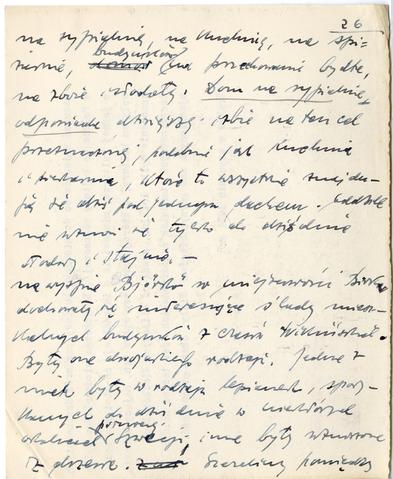 26
na sypialnię, na kuchnię, na spi-
żarnię, budynków dla przechowania bydła,
na zboże i stodoły. Dom na sypialnię
odpowiada dzisiejszej izbie na ten cel
przeznaczonej, podobnie jak kuchnia
i piekarnia, które to wszystkie znajdu-
ją się dziś pod jednym dachem. Oddziel
nie wznosi się tylko do dziś dnia
stodoły i stajnie. —
na wyspie Björkö w miejscowości Birka
dochowały się interesujące ślady miesz-
kalnych budynków z czasów Wikingów.
Były one dwojakiego rodzaju. Jedne z
nich były w rodzaju lepianek, spoty-
kanych do dziś dnia w niektórych
okolicach Szwecji, inne były wznoszone
z drzewa. Szczeliny pomiędzy